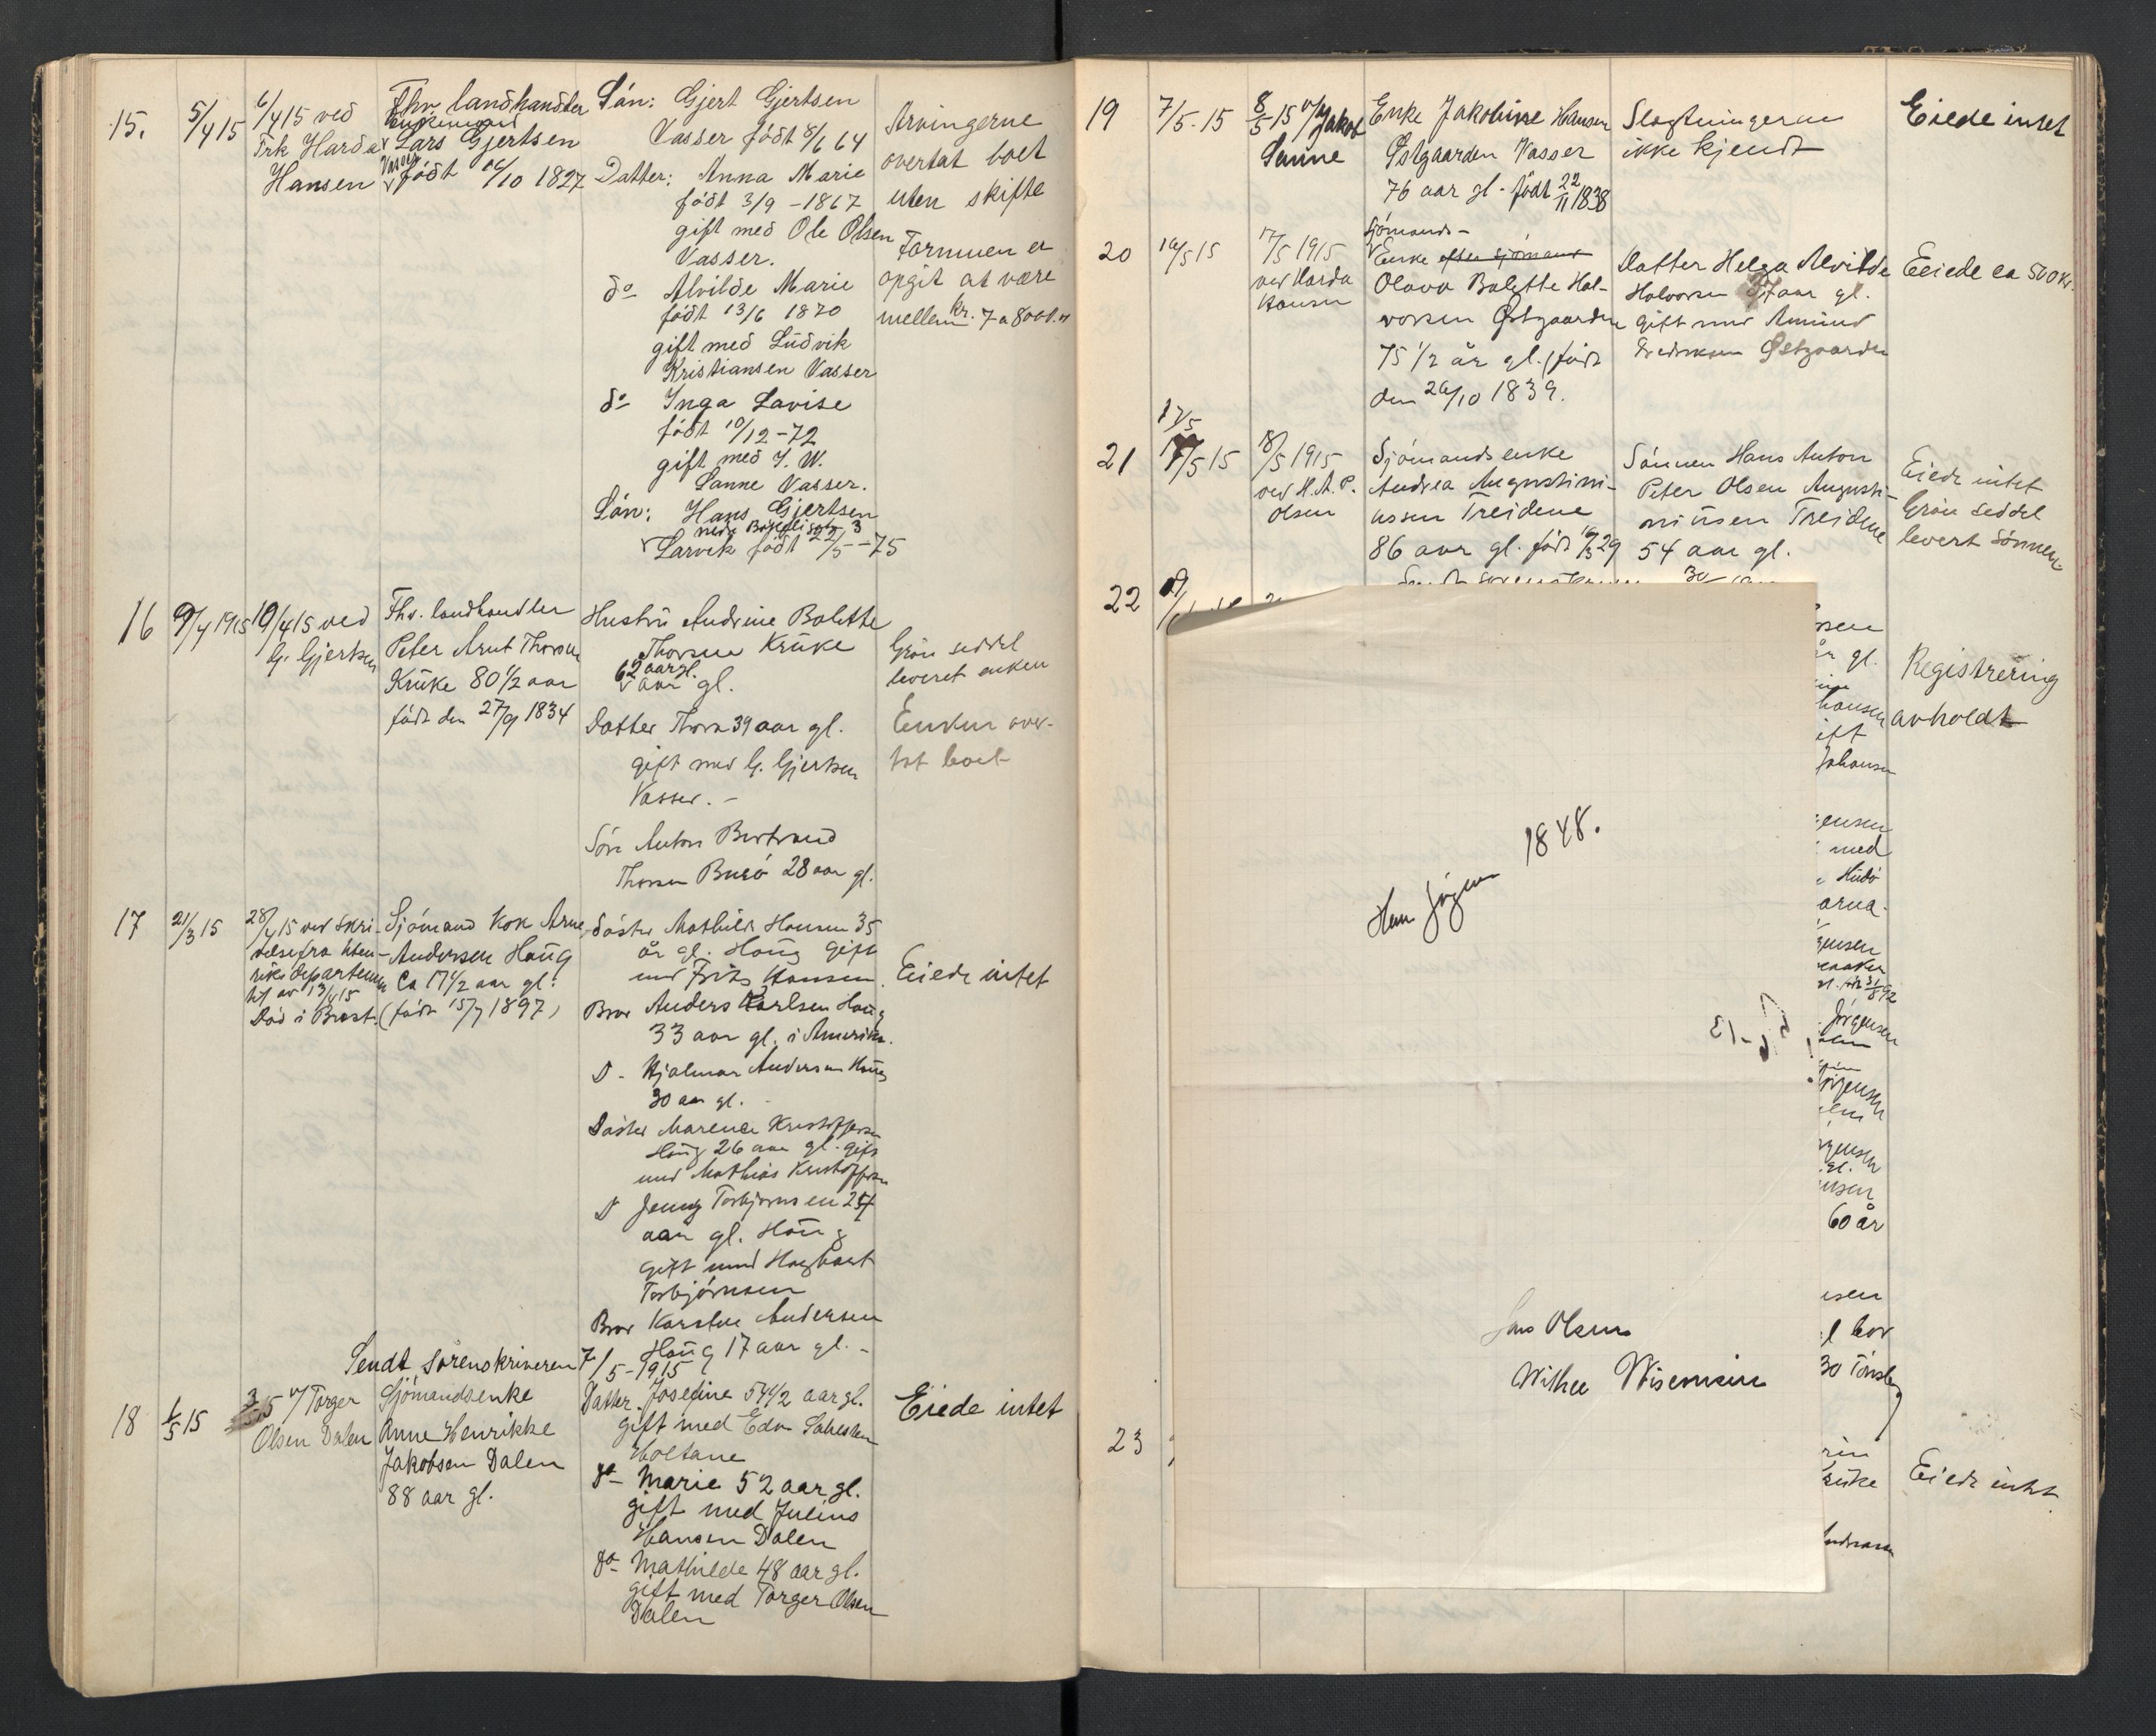 15.
5/4 15
6/4 15 ved
Frk Harda
Hansen
Fhv. landhandler
enkemand
Lars Gjertsen
Vasser
født 16/10 1827
Sön: Gjert Gjertsen
Vasser født 8/6 64
Datter: Anna Marie
født 3/9 - 1867
gift med Ole Olsen
Vasser.
do Alvilde Marie
født 13/6 1870
gift med Ludvik
Kristiansen Vasser
do Inga Lovise
født 10/12 - 72
gift med J. W.
Sanne Vasser.
Sön: Hans Gjertsen
Larvik født 22/5 - 75
Arvingerne
overtat boet
uten skifte
Formuen er
opgit at være
mellem kr. 7 a 8000.
16
9/4 1915
10/4 15 ved
G. Gjertsen
Fhv. landhandler
Peter Arnt Thorsen
Krüke 80 1/2 aar
født den 27/9 1834
Hustrü Andrine Bolette
Thorsen Krüke
62 aar gl.
aar gl.
Datter Thora 39 aar gl.
gift med G. Gjertsen
Vasser. -
Sön Anton Bertrand
Thorsen Buerö 28 aar gl.
Grön seddel
leveret enken
Enken over-
tat boet
17
21/3 15
28/4 15 ved skri-
velse fra Uten-
riksdepartemen
tet av 13/4 15
Död i Brest.
Sjömand Kok Arne
Andersen Haüg
Ca 17 1/2 aar gl.
(født 15/7 1897)
Söster Mathilde Hansen 35
år gl. Haüg gift
med Frits Hansen.
Bror Anders Karlsen Haüg
33 aar gl. i Amerika.
D - Hjalmar Andersen Haüg
30 aar gl. -
Söster Marence Kristoffersen
Haüg 26 aar gl. gift
med Mathias Kristoffersen
D Jenny Torbjornsen 24
aar gl. Haüg
gift med Hagbart
Torbjörnsen
Bror Karsten Andersen
Haüg 17 aar gl. -
Eiede intet
Sendt sorenskriveren 7/5 - 1915
18
1/5 15
3/5 v/ Torger
Olsen Dalen
Sjömandsenke
Anne Henrikke
Jakobsen Dalen
88 aar gl.
Datter Josefine 54 1/2 aar gl.
gift med Edv.
Holtane
do - Marie 52 aar gl.
gift med Julius
Hansen Dalen
do - Mathilde 48 aar gl.
gift med Torger Olsen
Dalen
Eiede intet
19
7/5 - 15
8/5 15 v/ Jakob
Sanne
Enke Jakobine Hansen
Østgaarden Vasser
76 aar gl. født 22/11 1838
Slegtningerne
ikke kjendt
Eiede intet
20
16/5 15
17/5 1915
ved Harda
Hansen
Sjömands-
Enke efter sjömand
Olava Bolette Hal-
vorsen Østgaarden
75 1/2 år gl. (født
den 26/10 1839.
Datter Helga Alvilde
Halvorsen aar gl.
gift med Amünd
Fredriksen Østgaarden
Eeiede ca 500 kr.
21
17/5
17/5 15
18/5 1915
ved H. A. P.
Olsen
Sjömandsenke
Andrea Augustini-
ussen Treidene
86 aar gl. født 29
Sönnen Hans Anton
Peter Olsen Augusti-
niüsen Treidene
54 aar gl.
Eiede intet
Grön seddel
levert Sönnen
22
Registrering
avholdt
1848.
Hans Jörgen
Olsen
Withee Wisconsin
med
60 år
bor
30 Tönsberg
23
Eiede intet